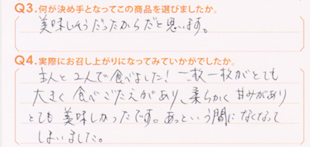 Q3.何が決め手となってこの商品を選びましたか。
美味しそうだったからだと思います。
Q4.実際にお召し上がりになってみていかがでしたか。
主人と2人で食べました!一枚一枚がとても
大きく食べごたえがあり、柔らかく甘みがあり
とても美味しかったです。あっという間になくなって
しまいました。